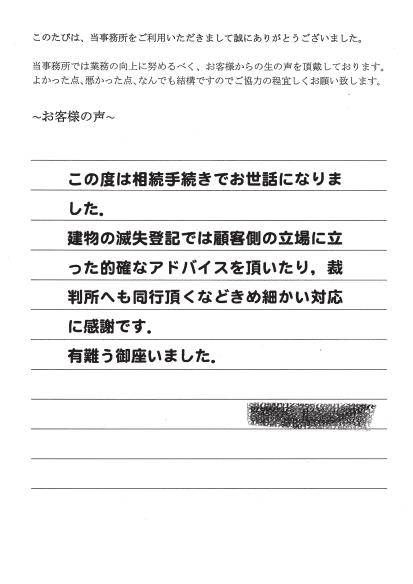 このたびは、当事務所をご利用いただきまして誠にありがとうございました。
当事務所では業務の向上に努めるべく、お客様からの生の声を頂戴しております。
よかった点、悪かった点、なんでも結構ですのでご協力の程宜しくお願い致します。
~お客様の声~
この度は相続手続きでお世話になりま
した．
建物の滅失登記では顧客側の立場に立
った的確なアドバイスを頂いたり，裁
判所へも同行頂くなどきめ細かい対応
に感謝です．
有難う御座いました．